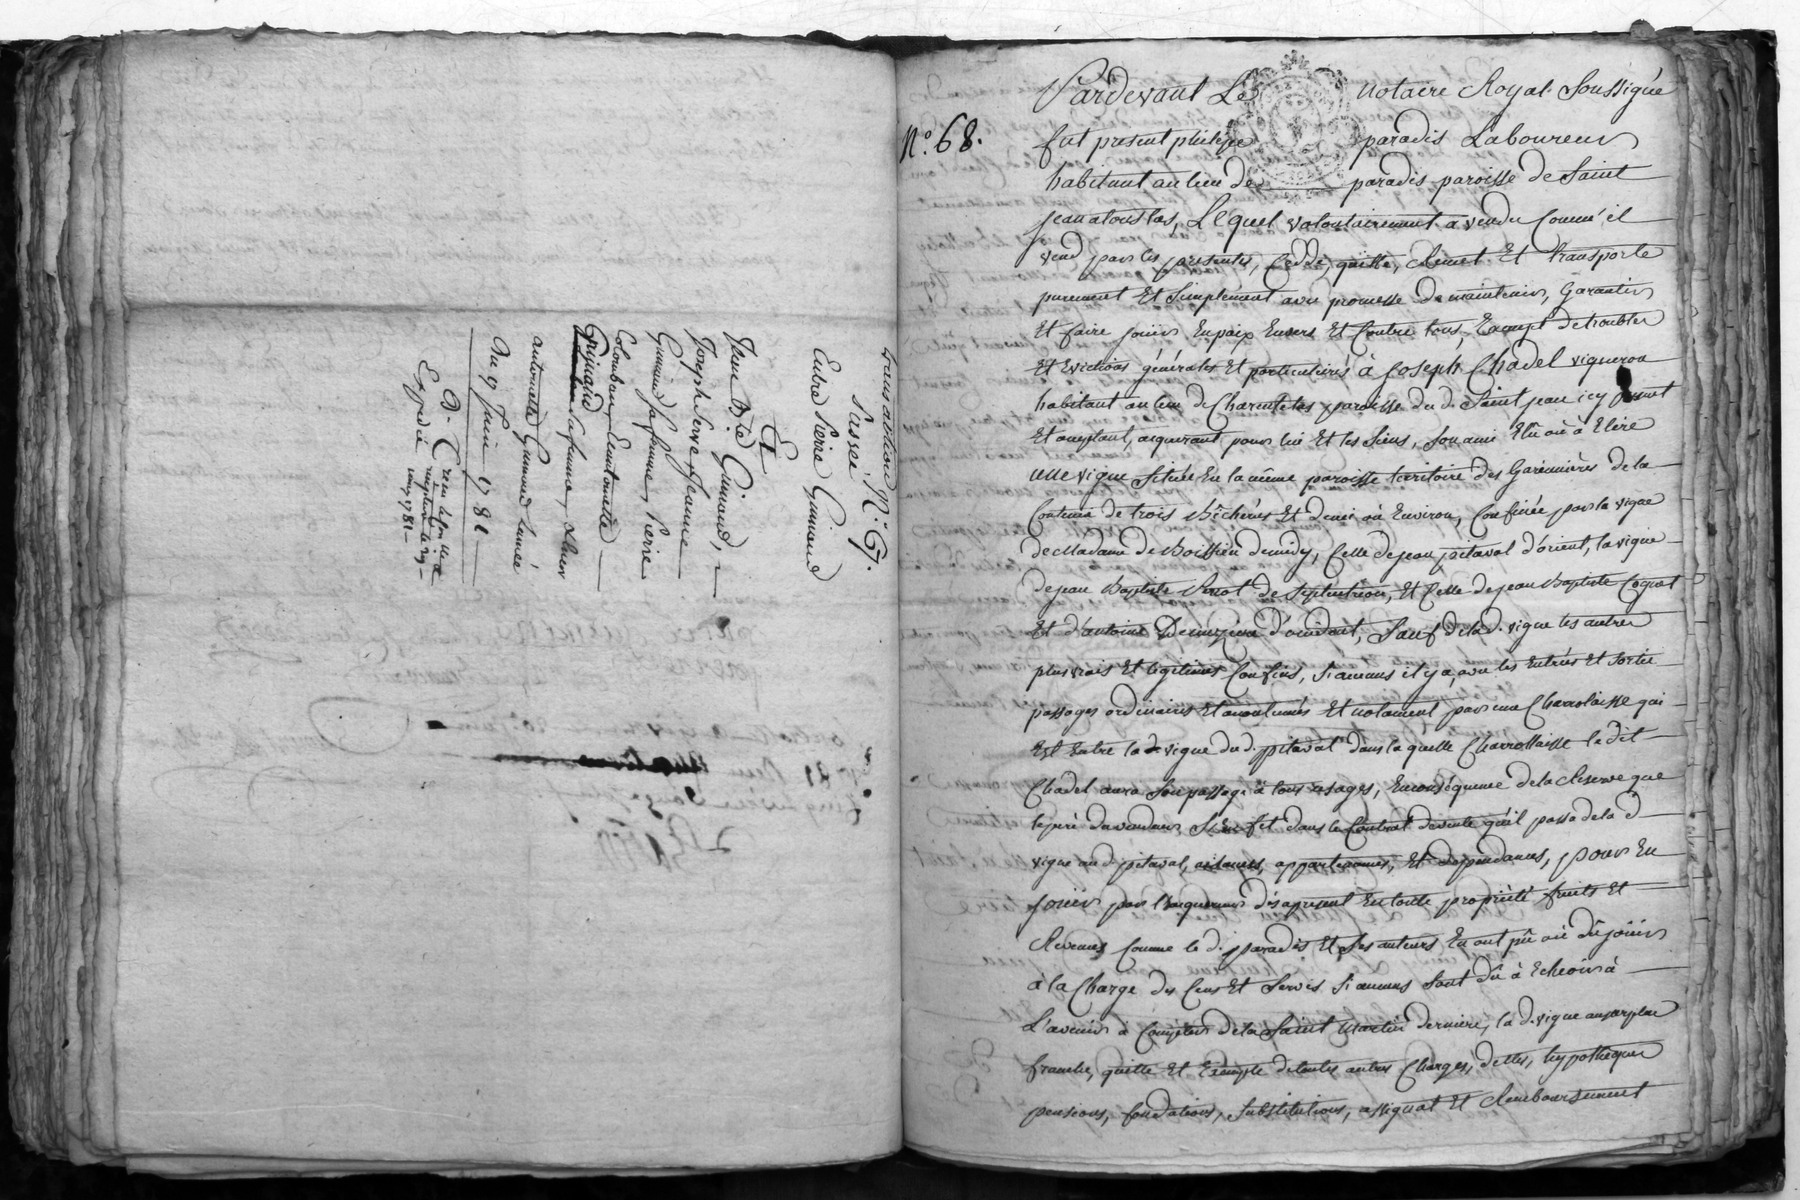 transaction N.° 67.
Passé
Entre Pierre Gimaud
Et
Jean B.te Gimaud, —
Joseph Serve & Jeanne —
Gimaud sa femme, Pierre
Colomban, & antoinette —
Grimaud
sa femme, &
antoinette Gimaud
Du 9 Juin 1781 —
Expedié
1781 —
N.° 68.
Pardevant Le notaire Royal Soussigné
fut present philippe paradis Laboureur
habitant au lieu de paradis paroisse de Saint
jean a touslas, Lequel volontairement a vendu comme il
vend par les presentes, Cedde, quitte, Remet Et transporte
purement Et Simplement avec promesse De maintenir, Garantir
Et faire jouir En paix Envers Et Contre tous, Exempt de troubles
Et Evictions générales Et particulieres à Joseph Chadel vigneron
habitant au lieu de Charentelas paroisse du d. Saint jean icy present
Et acceptant, acquerant pour lui Et les Siens, Son ami Elû où à Elire
une vigne Située En la même paroisse territoire des Garennières de la
Contenue de trois Bicherées Et demie où Environ, Confinée par la vigne
de Madame de Boissieu de midy, Celle de jean pitaval d'orient, la vigne
de jean Baptiste de Septentrion, Et Celle de jean Baptiste Coquet
Et d'antoine d'occident, Sauf de lad. vigne les autres
plus vrais Et legitimes Confins, Si aucuns il y a, avec les Entrées Et Sorties
passages ordinaires Et accoutumés Et notament par une Charrolaisse qui
Est Entre la d. vigne du d. pitaval dans laquelle Charrollaisse le dit
Chadel aura Son passage à tous usages, En conséquence de la Reserve que
le peré du vendeur S'En fit dans le Contrat de vente qu'il passa de la d.
vigne au d. pitaval, aisances, appartenances, Et dependances, pour En
jouir par l'acquereur dès a present En toute propriété fruits Et
Revenus comme le d. paradis Et Ses auteurs En ont pû où dû jouir
à la Charge des Cens Et Servis Si aucuns Sont dû à Echeoir à
L'avenir à Compter de la Saint Martin derniere, la d. vigne au surplus
franche, quitte Et Exempte de toutes autres Charges, dettes, hypotheques
pensions, fondations, Substitutions, assignat Et Remboursement